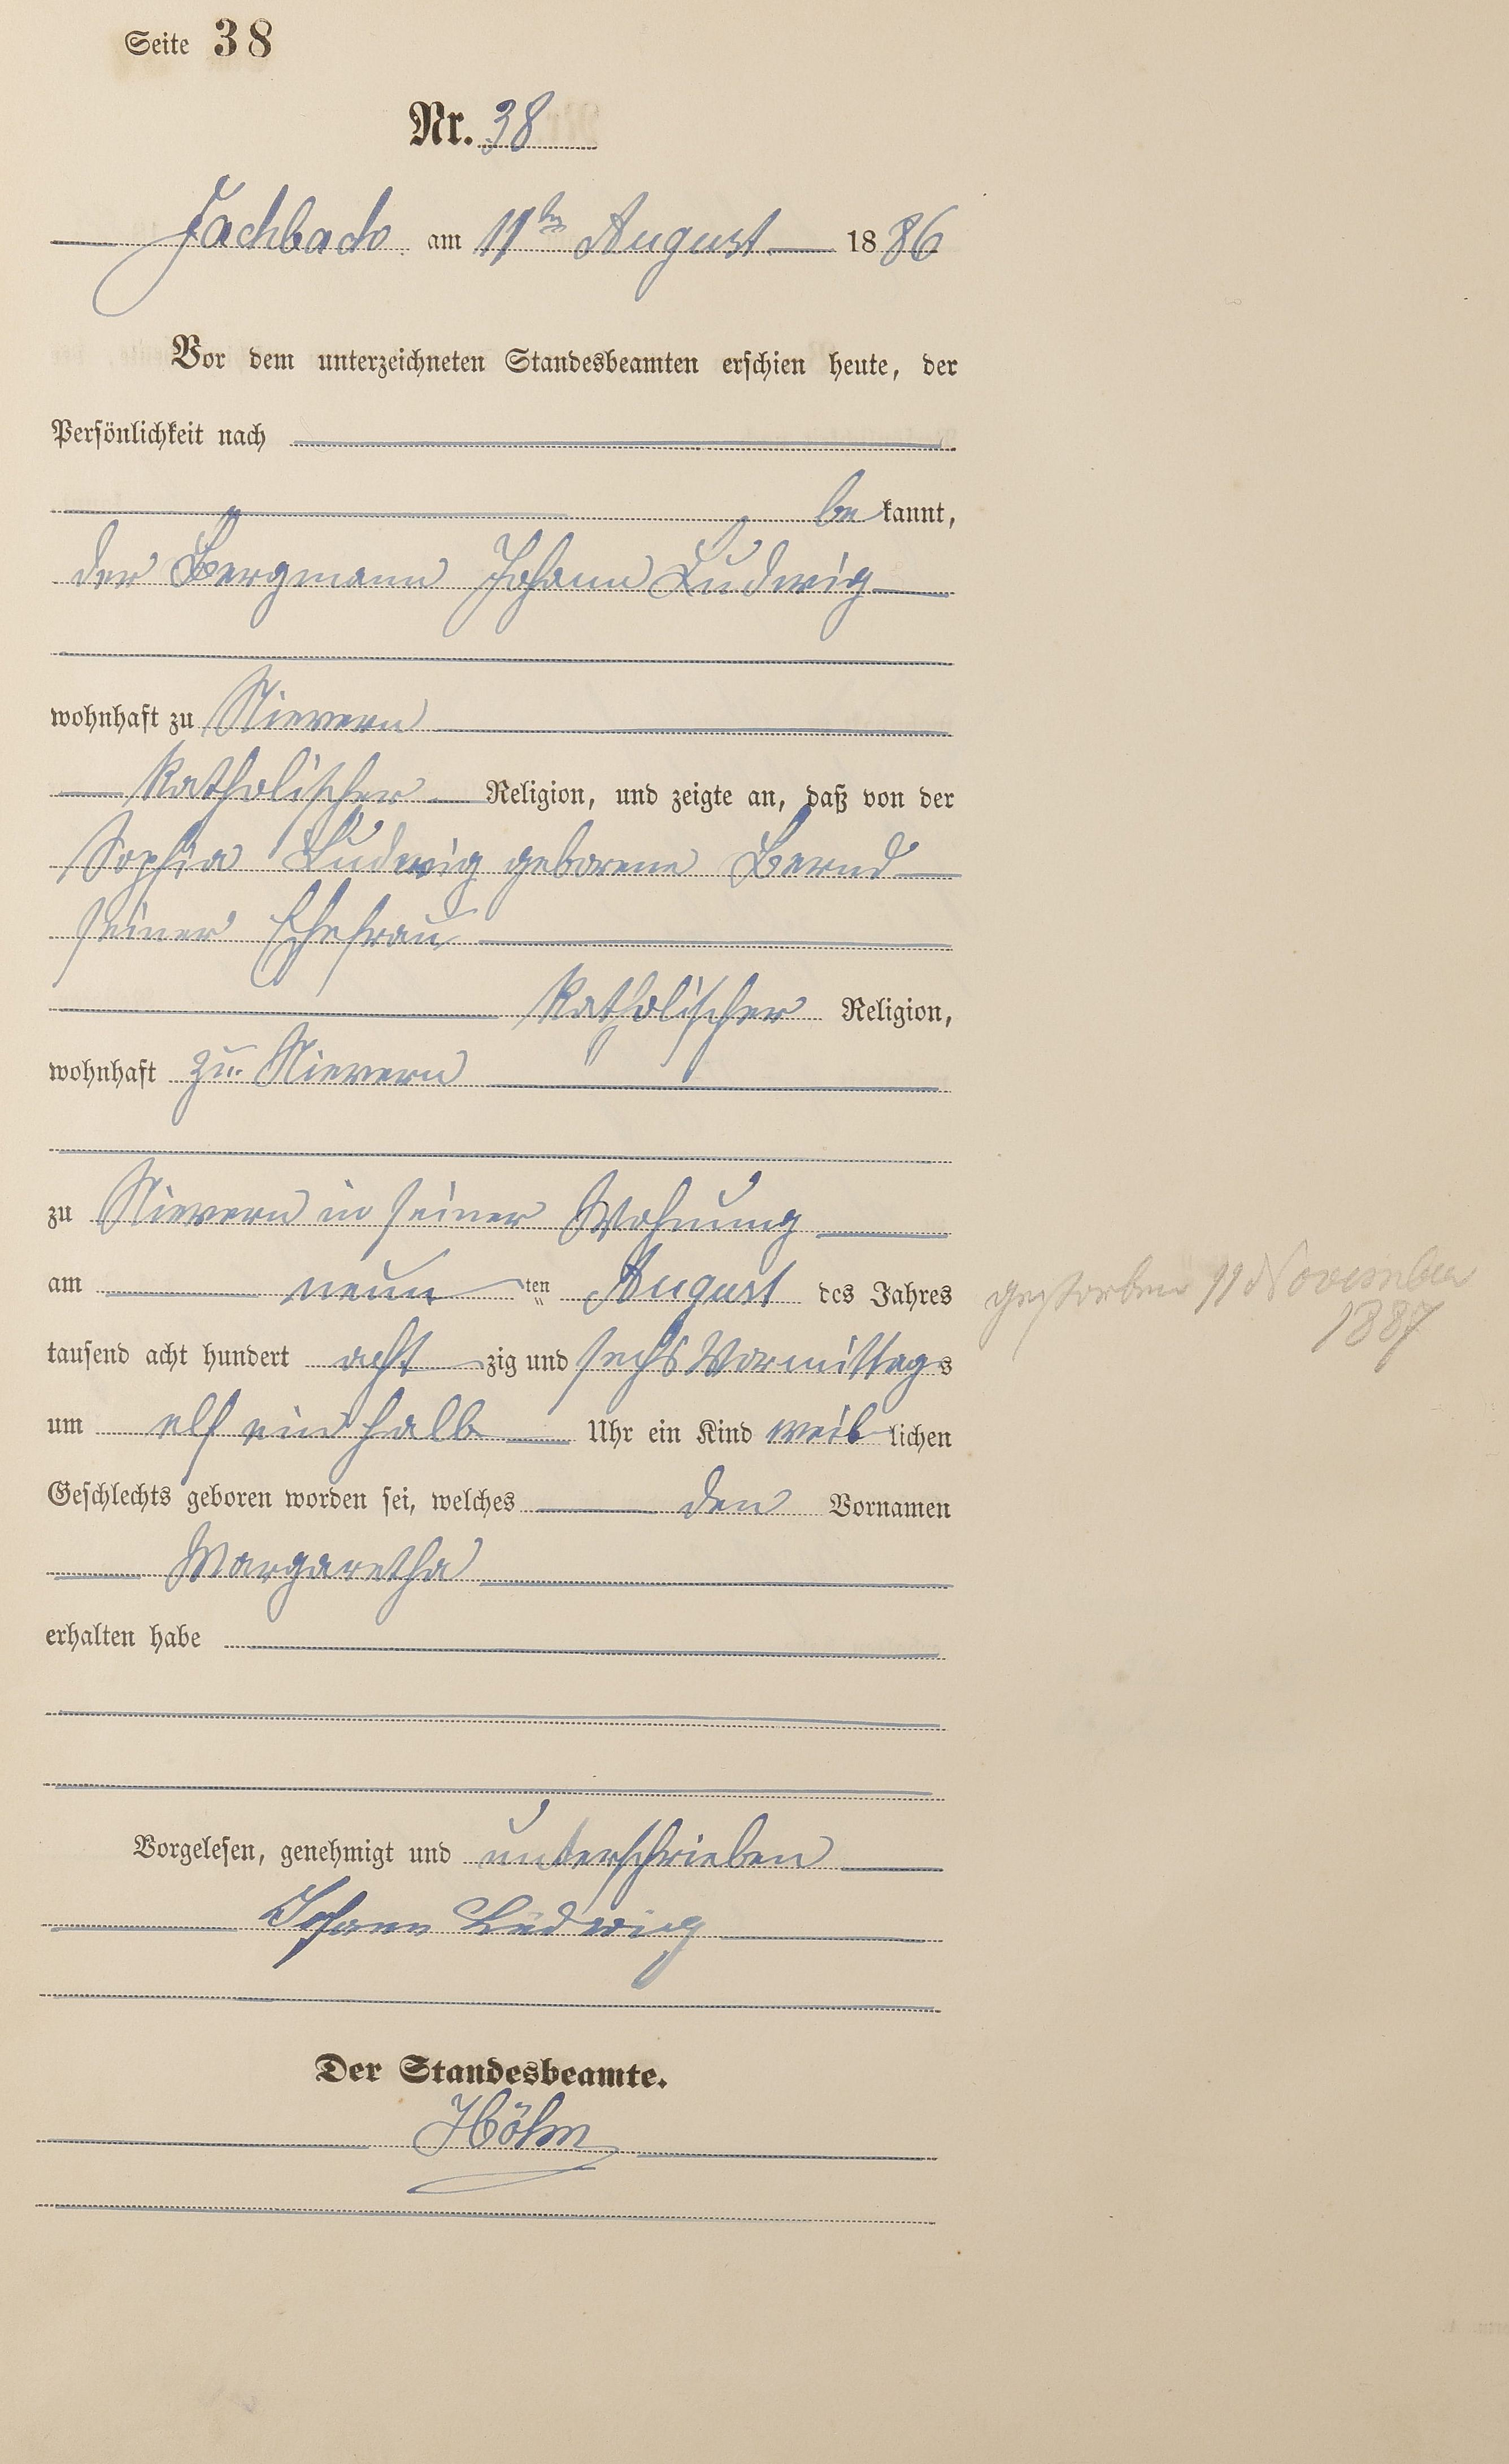 Seite 38
Nr. 38
Fachbach am 11ten August 1886
Vor dem unterzeichneten Standesbeamten erschien heute, der
Persönlichkeit nach
bekannt,
der Bergmann Johann Ludwig
wohnhaft zu Nievern
katholischer Religion, und zeigte an, daß von der
Sophia Ludwig geborene Bernd
seiner Ehefrau
katholischer Religion,
wohnhaft zu Nievern
zu Nievern in seiner Wohnung
am neun ten August des Jahres
gestorben 11 November
1887
tausend acht hundert acht zig und sechs Vormittags
um elf ein halb Uhr ein Kind weiblichen
Geschlechts geboren worden sei, welches den Vornamen
Margaretha
erhalten habe
Vorgelesen, genehmigt und unterschrieben
Johann Ludwig
Der Standesbeamte.
Höhn